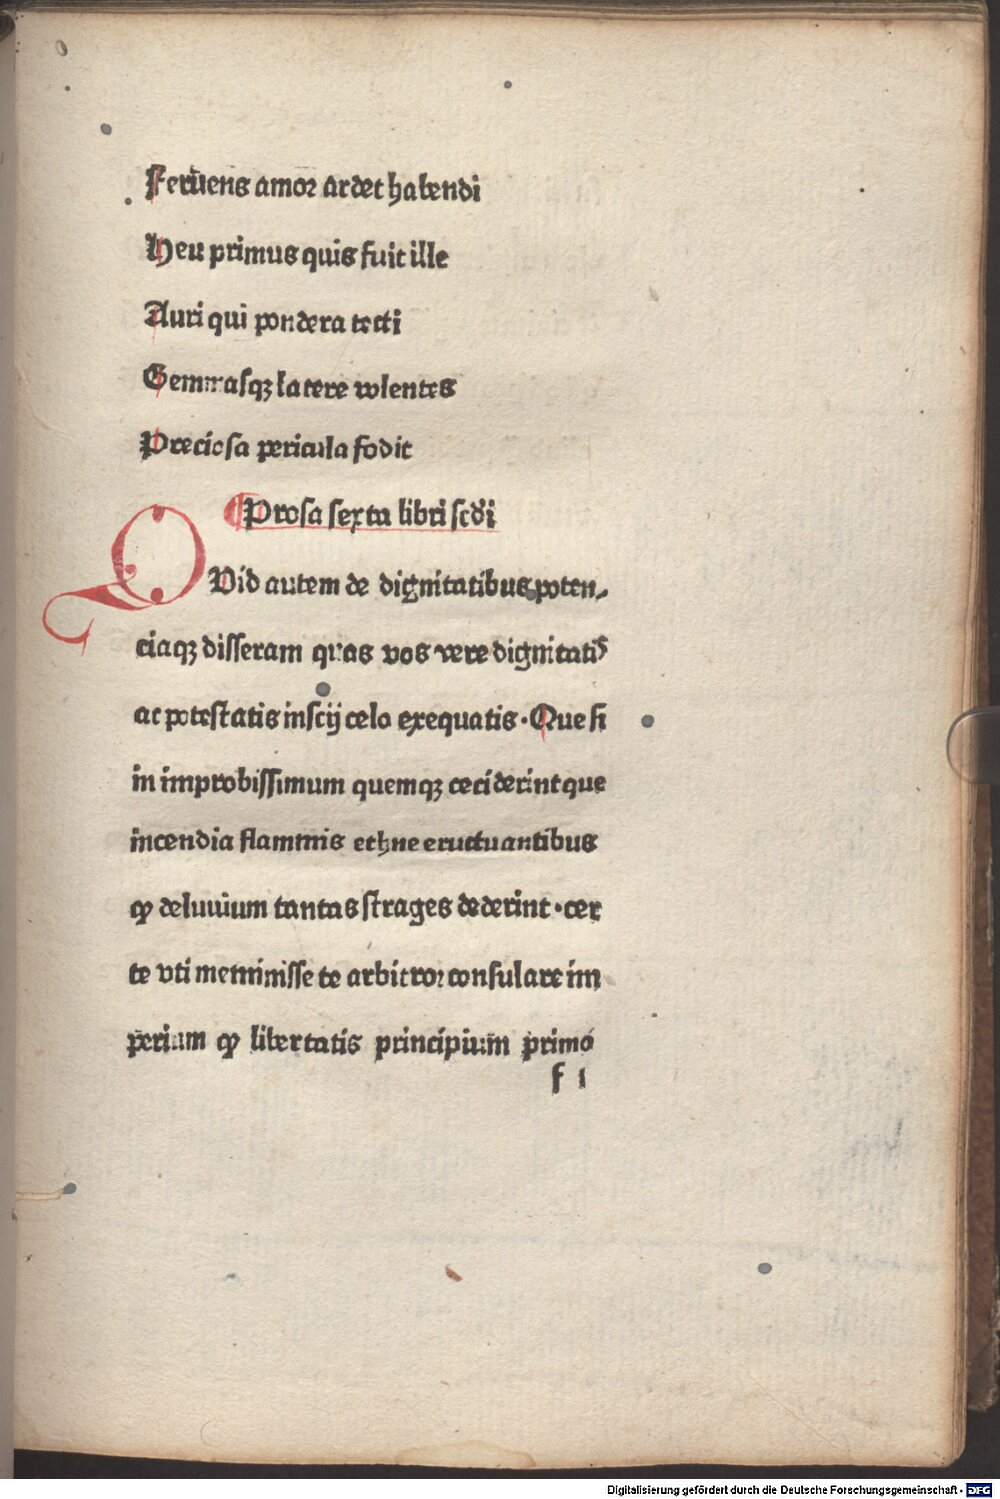 Feruens amor ardet habendi
Heu primus quis fuit ille
Auri qui pondera tecti
Gemmasqꝫ latere volentes
Preciosa pericula fodit
¶Prosa sexta libri scđi
QVid autem de dignitatibus poten⸗
ciaqꝫ disseram quas vos vere dignitatis
ac potestatis inscij celo exequatis · Que si
in improbissimum quemqꝫ ceciderint que
incendia flammis ethne eructuantibus
qͥ deluuium tantas strages dederint · cer
te vti meminisse te arbitror consulare im
perium qͥ libertatis principium primo
f 1
Digitalisierung gefördert durch die Deutsche Forschungsgemeinschaft - DFG